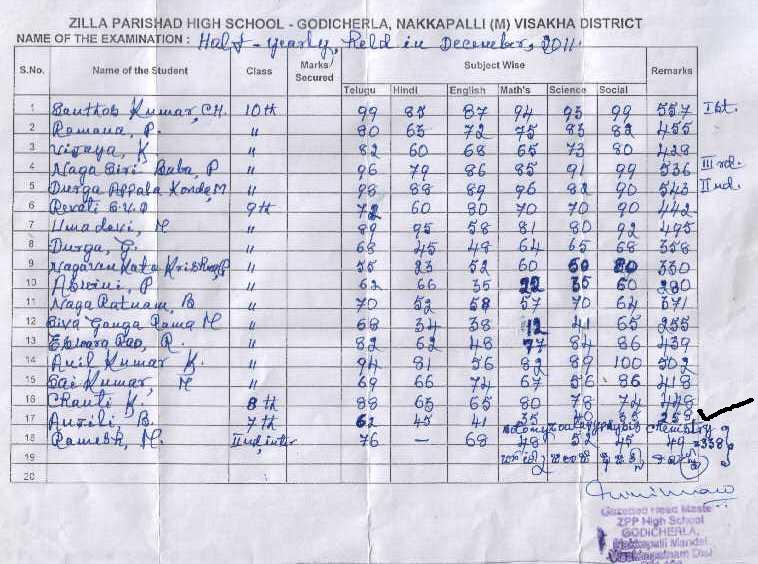 ZILLA PARISHAD HIGH SCHOOL - GODICHERLA, NAKKAPALLI (M) VISAKHA DISTRICT
NAME OF THE EXAMINATION : Half - yearly, Held in December, 2011.
S.No. Name of the Student Class Marks Secured Subject Wise Remarks
Telugu Hindi English Math's Science Social
1 Santhosh Kumar, CH. 10th 99 85 87 94 93 99 557 Ist.
2 Ramana, P. " 80 63 72 75 83 82 455
3 Vijaya, K " 82 60 68 65 73 80 428
4 Naga Siri Baba, P " 96 79 86 85 91 99 536 IIIrd.
5 Durga Appala Konda, M " 98 88 89 96 82 90 543 IInd.
6 Revati 9th 72 60 80 70 70 90 442
7 Umadevi, M " 89 95 58 81 80 92 495
8 Durga, G. " 68 45 48 64 65 68 358
9 Nagaven Kata Krishna, P " 55 23 52 60 60 80 330
10 Aswini, P " 62 66 35 22 35 60 280
11 Naga Ratnam, B " 70 52 58 57 70 64 371
12 Siva Ganga Rama M " 68 34 38 12 41 65 255
13 Eswara Rao, R. " 82 62 48 77 84 86 439
14 Anil Kumar K. " 94 81 56 82 89 100 502
15 Sai Kumar, M " 69 66 74 67 56 86 418
16 Chanti K. 8th 88 65 65 80 78 72 448
17 B. 7th 62 45 41 35 40 35 258
Botony Zoology physics chemistry
18 Ramesh, M. IInd inter 76 - 68 48 52 45 49 =338
19
20
Gazetted Head Master
ZPP High School
GODICHERLA,
Nakkapalli Mandal
Visakhapatnam Dist